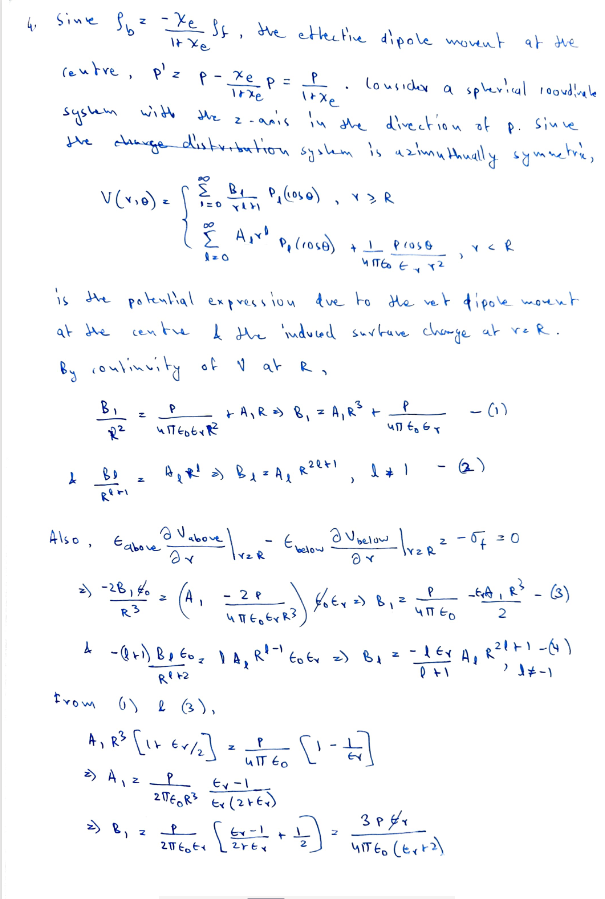 4. Since ρ_b = -χe/(1+χe) ρ_f, the effective dipole moment at the
centre, p' = p - χe/(1+χe) p = p/(1+χe). Consider a spherical coordinate
system with the z-axis in the direction of p. Since
the charge distribution system is azimuthually symmetric,
V(r,θ) = { ∞Σl=0 B_l/r^(l+1) P_l(cosθ), r ≥ R
∞Σl=0 A_l r^l P_l(cosθ) + 1/(4πϵ0) p cosθ/(ϵr r²), r < R
is the potential expression due to the net dipole moment
at the centre & the induced surface charge at r=R.
By continuity of V at R,
B_1/R² = p/(4πϵ0ϵrR²) + A_1R ⇒ B_1 = A_1R³ + p/(4πϵ0ϵr) - (1)
& B_l/R^(l+1) = A_l R^l ⇒ B_l = A_l R^(2l+1), l ≠ 1 - (2)
Also, ϵabove ∂Vabove/∂r |r=R - ϵbelow ∂Vbelow/∂r |r=R = -σ_f = 0
⇒ -2B_1ϵ0/R³ = (A_1 - 2p/(4πϵ0ϵrR³)) ϵ0ϵr ⇒ B_1 = p/(4πϵ0) - ϵrA_1R³/2 - (3)
& -(l+1)B_lϵ0/R^(l+2) = l A_l R^(l-1) ϵ0ϵr ⇒ B_l = -lϵr/(l+1) A_l R^(2l+1), l≠-1 - (4)
From (1) & (3),
A_1R³[1+ϵr/2] = p/(4πϵ0) [1 - 1/ϵr]
⇒ A_1 = p/(2πϵ0R³) (ϵr-1)/(ϵr(2+ϵr))
⇒ B_1 = p/(2πϵ0ϵr) [(ϵr-1)/(2+ϵr) + 1/2] = 3pϵr/(4πϵ0(ϵr+2))